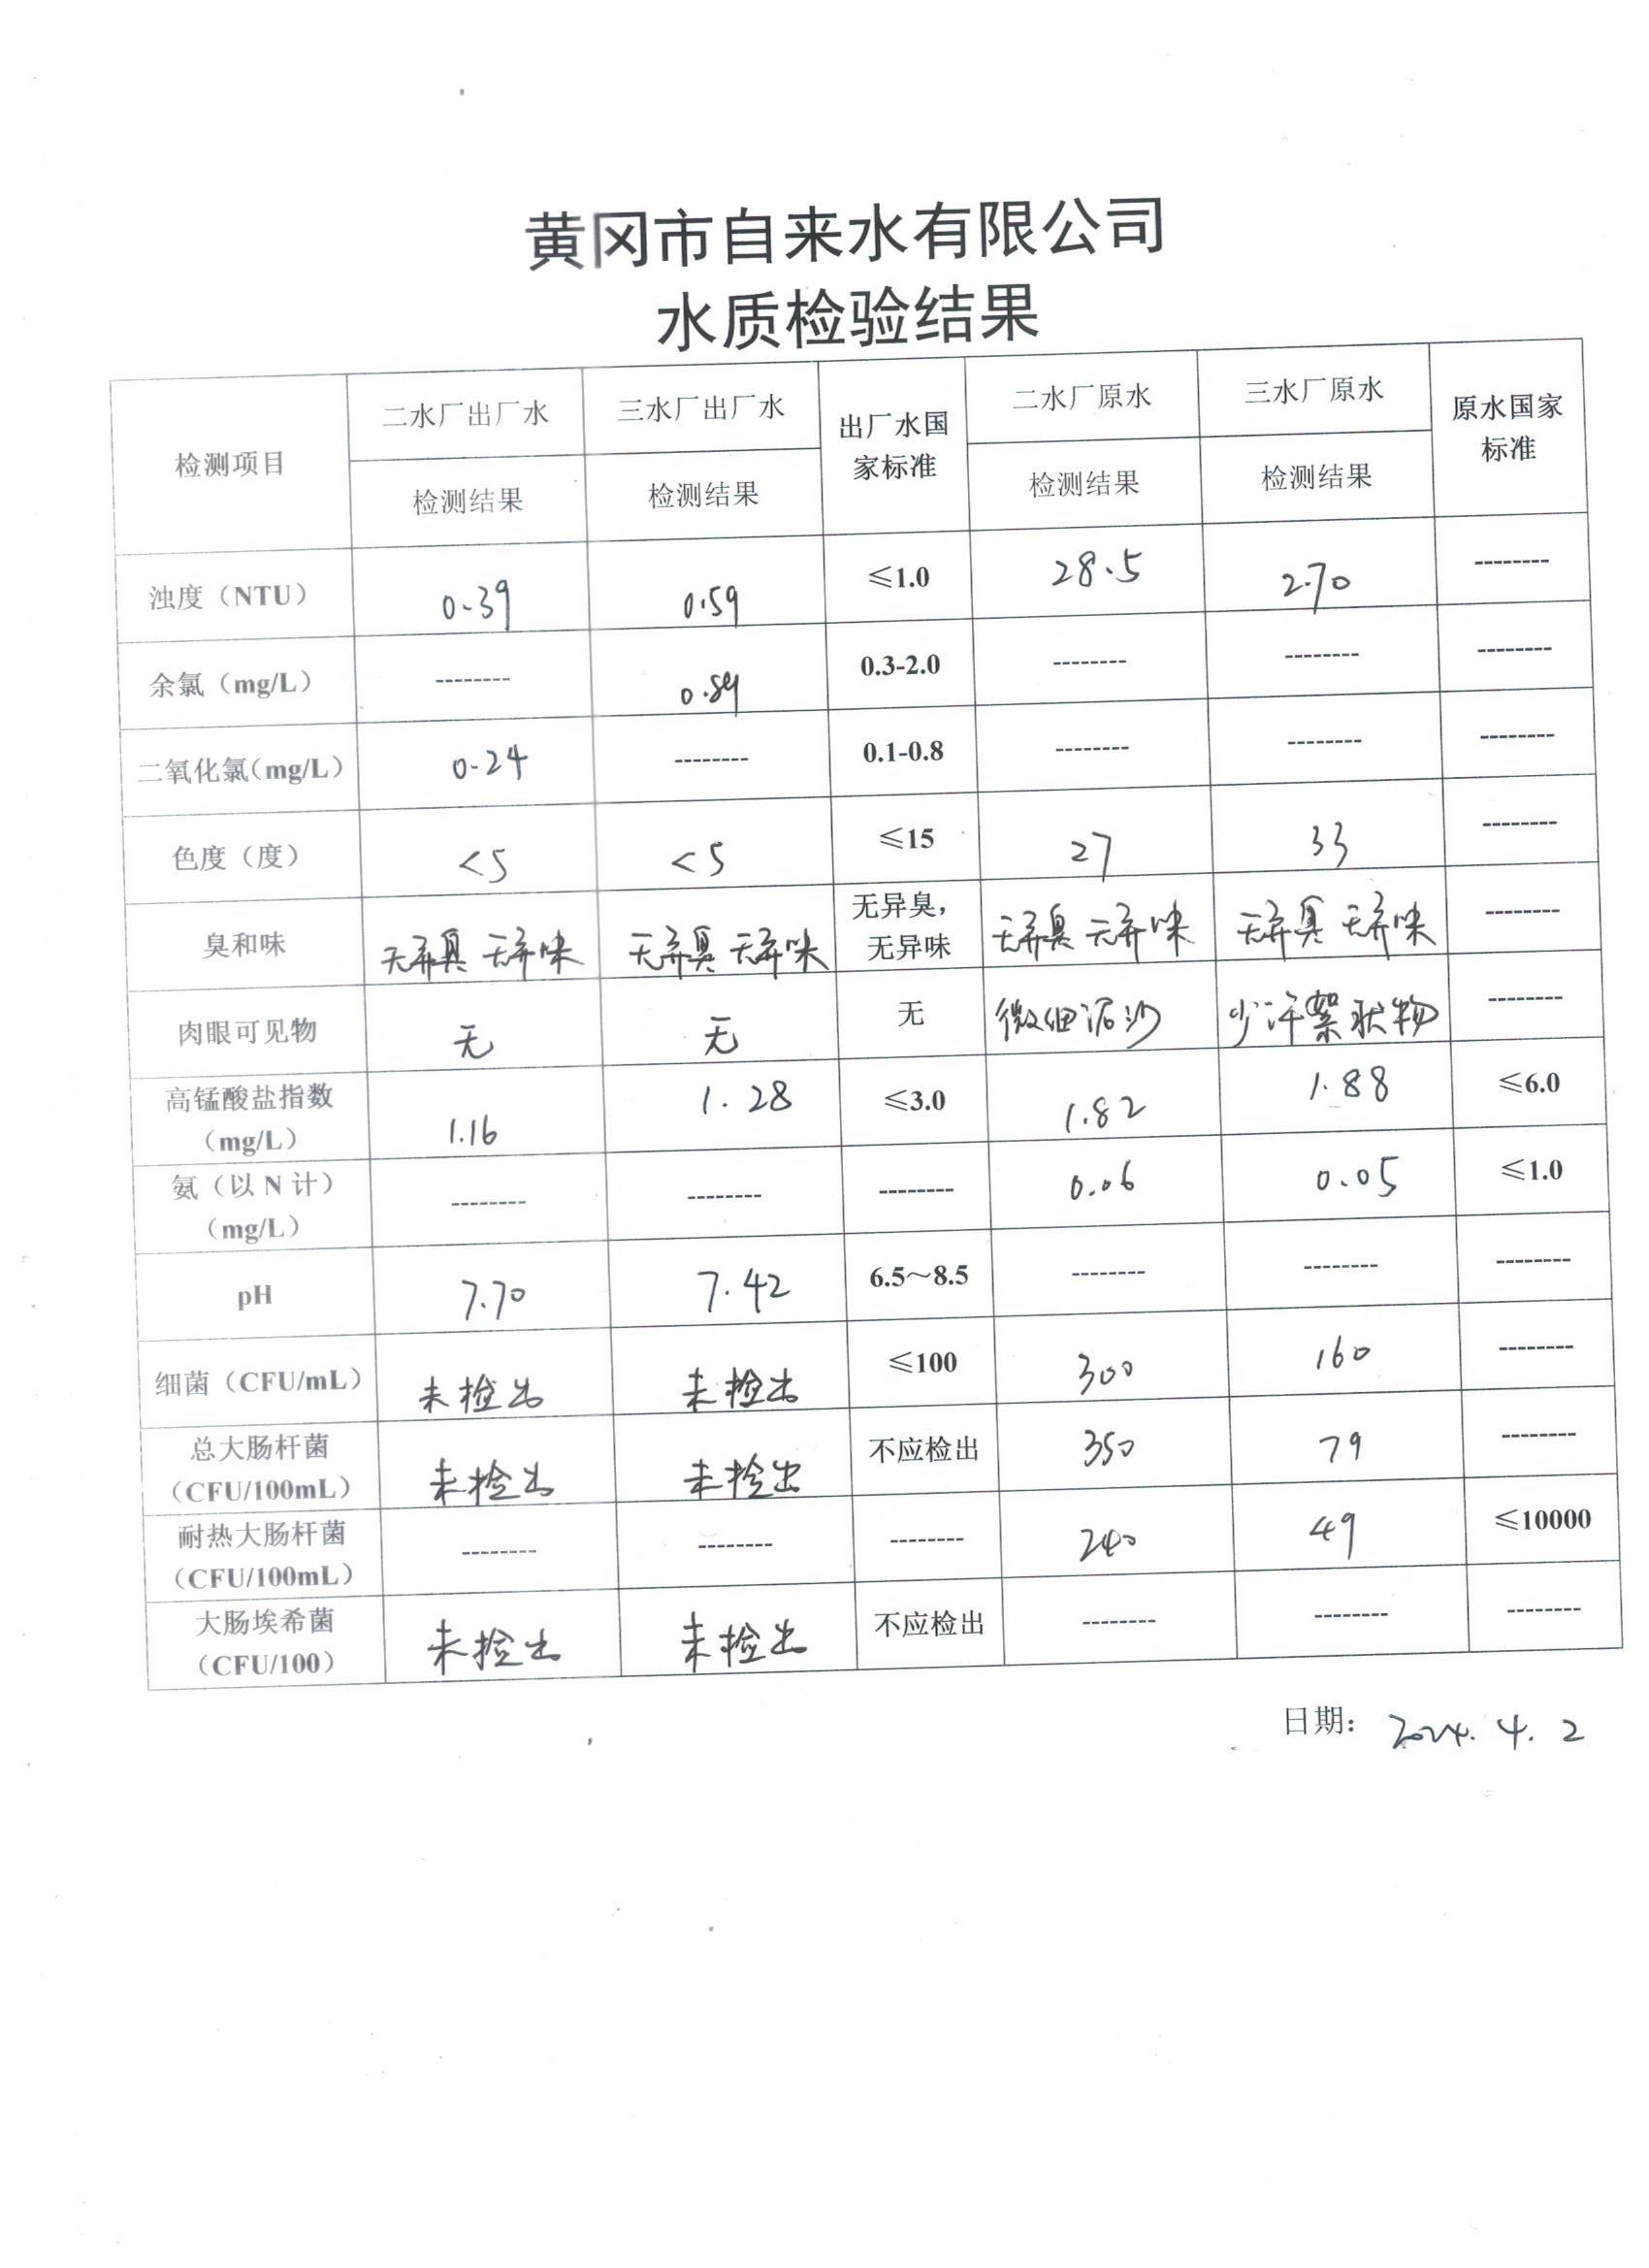 黄冈市自来水有限公司
水质检验结果
检测项目 二水厂出厂水 三水厂出厂水 出厂水国家标准 二水厂原水 三水厂原水 原水国家标准
检测结果 检测结果 检测结果 检测结果
浊度（NTU） 0.39 0.59 ≤1.0 28.5 2.70 --------
余氯（mg/L） -------- 0.89 0.3-2.0 -------- -------- --------
二氧化氯（mg/L） 0.24 -------- 0.1-0.8 -------- -------- --------
色度（度） <5 <5 ≤15 27 33 --------
臭和味 无异臭 无异味 无异臭 无异味 无异臭，无异味 无异臭 无异味 无异臭 无异味 --------
肉眼可见物 无 无 无 微细泥沙 少许絮状物 --------
高锰酸盐指数（mg/L） 1.16 1.28 ≤3.0 1.82 1.88 ≤6.0
氨（以 N 计）（mg/L） -------- -------- -------- 0.06 0.05 ≤1.0
pH 7.70 7.42 6.5～8.5 -------- -------- --------
细菌（CFU/mL） 未检出 未检出 ≤100 300 160 --------
总大肠杆菌（CFU/100mL） 未检出 未检出 不应检出 350 79 --------
耐热大肠杆菌（CFU/100mL） -------- -------- -------- 240 49 ≤10000
大肠埃希菌（CFU/100） 未检出 未检出 不应检出 -------- -------- --------
日期： 2024.4.2